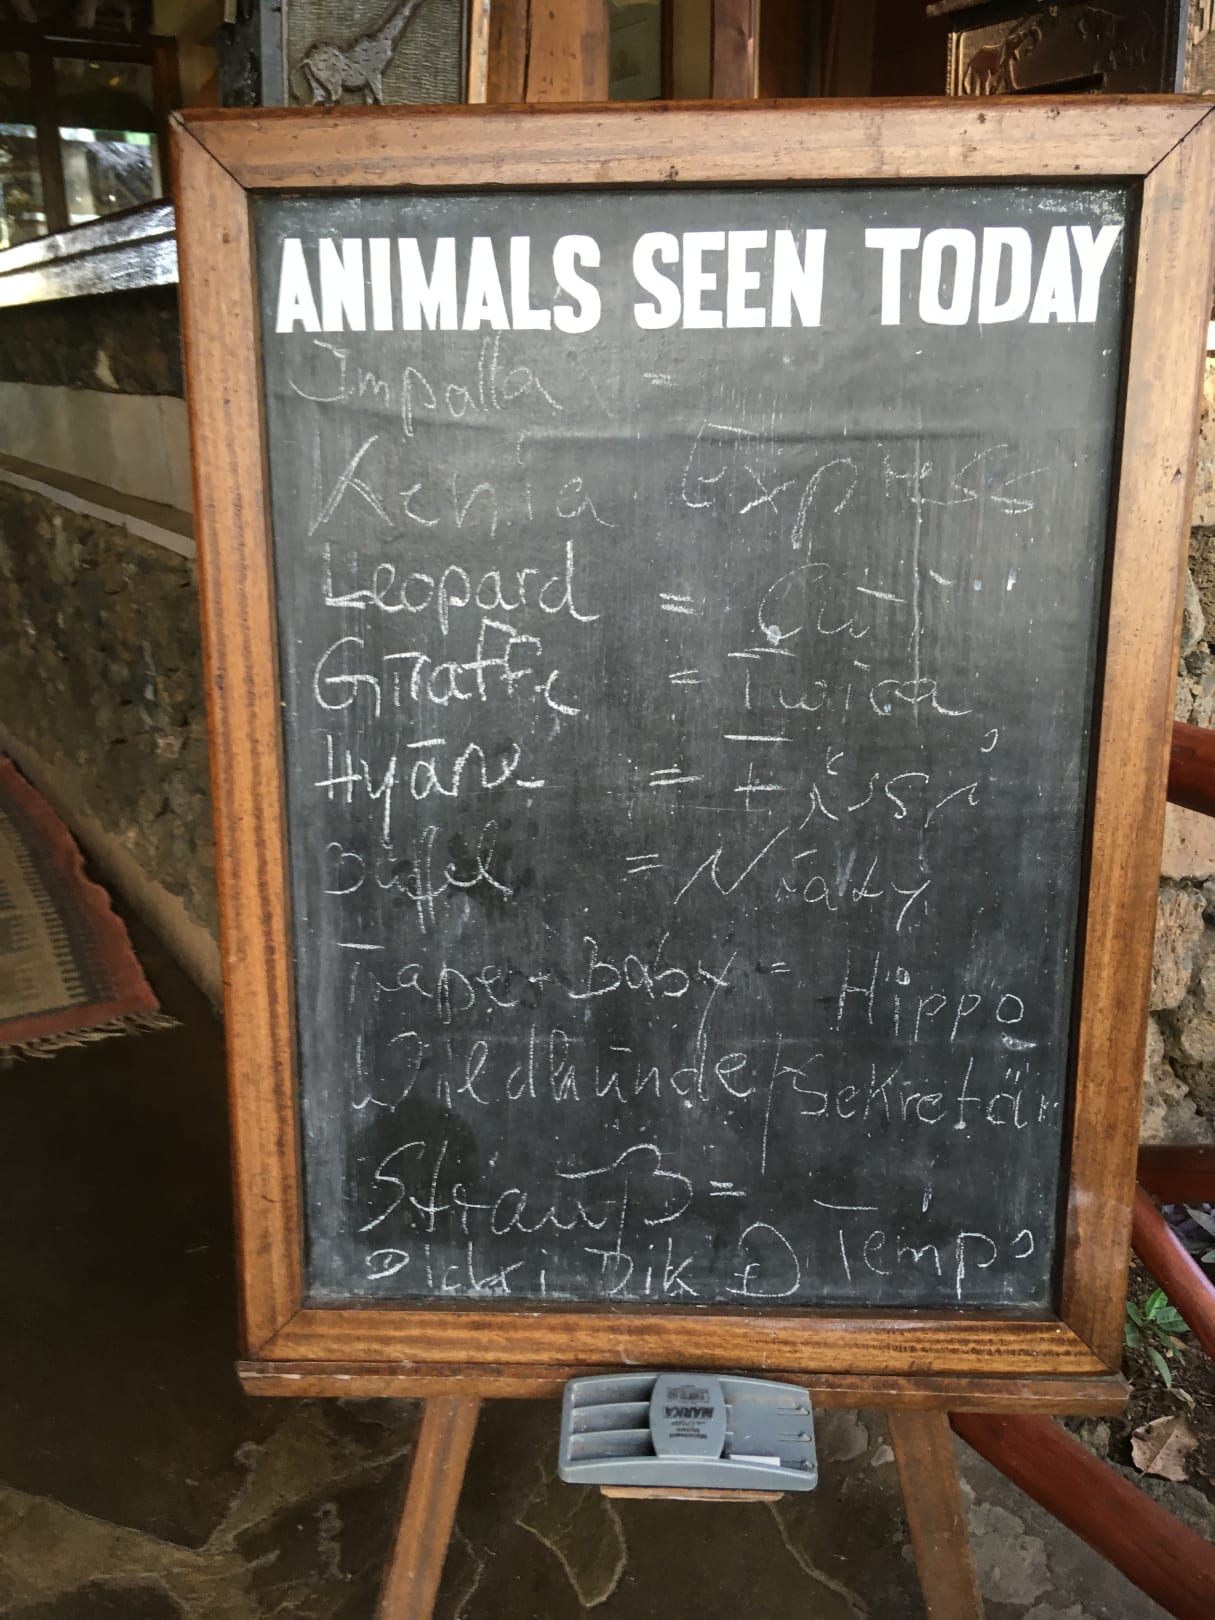 ANIMALS SEEN TODAY
Impalla =
Kenia Express
Leopard = Chui
Giraffe = Twiga
Hyäne = Fisi
Büffel =
Baby = Hippo
Wildhunde / Sekretär
Strauß =
Dik Tempo
MARKA